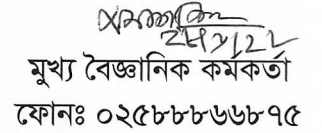 মুখ্য বৈজ্ঞানিক কর্মকর্তা
ফোনঃ ০২৫৮৮৮৬৬৮৭৫